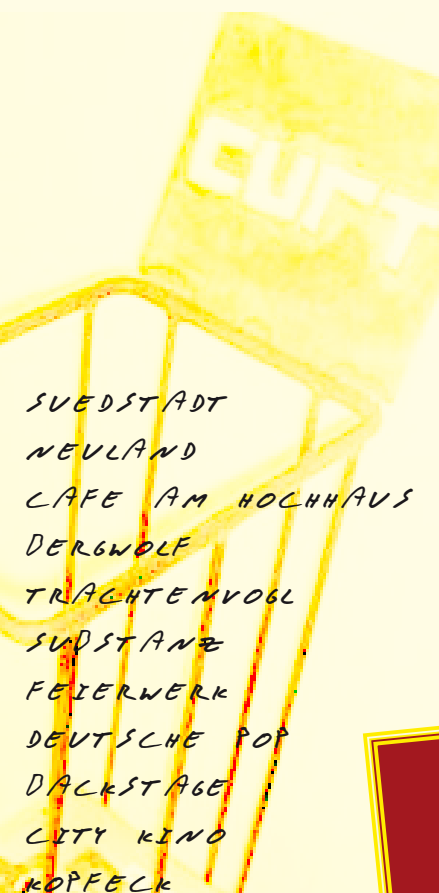 CURT
SUEDSTADT
NEULAND
CAFE AM HOCHHAUS
BERGWOLF
TRACHTENVOGL
SUBSTANZ
FEIERWERK
DEUTSCHE POP
BACKSTAGE
CITY KINO
KOPFECK